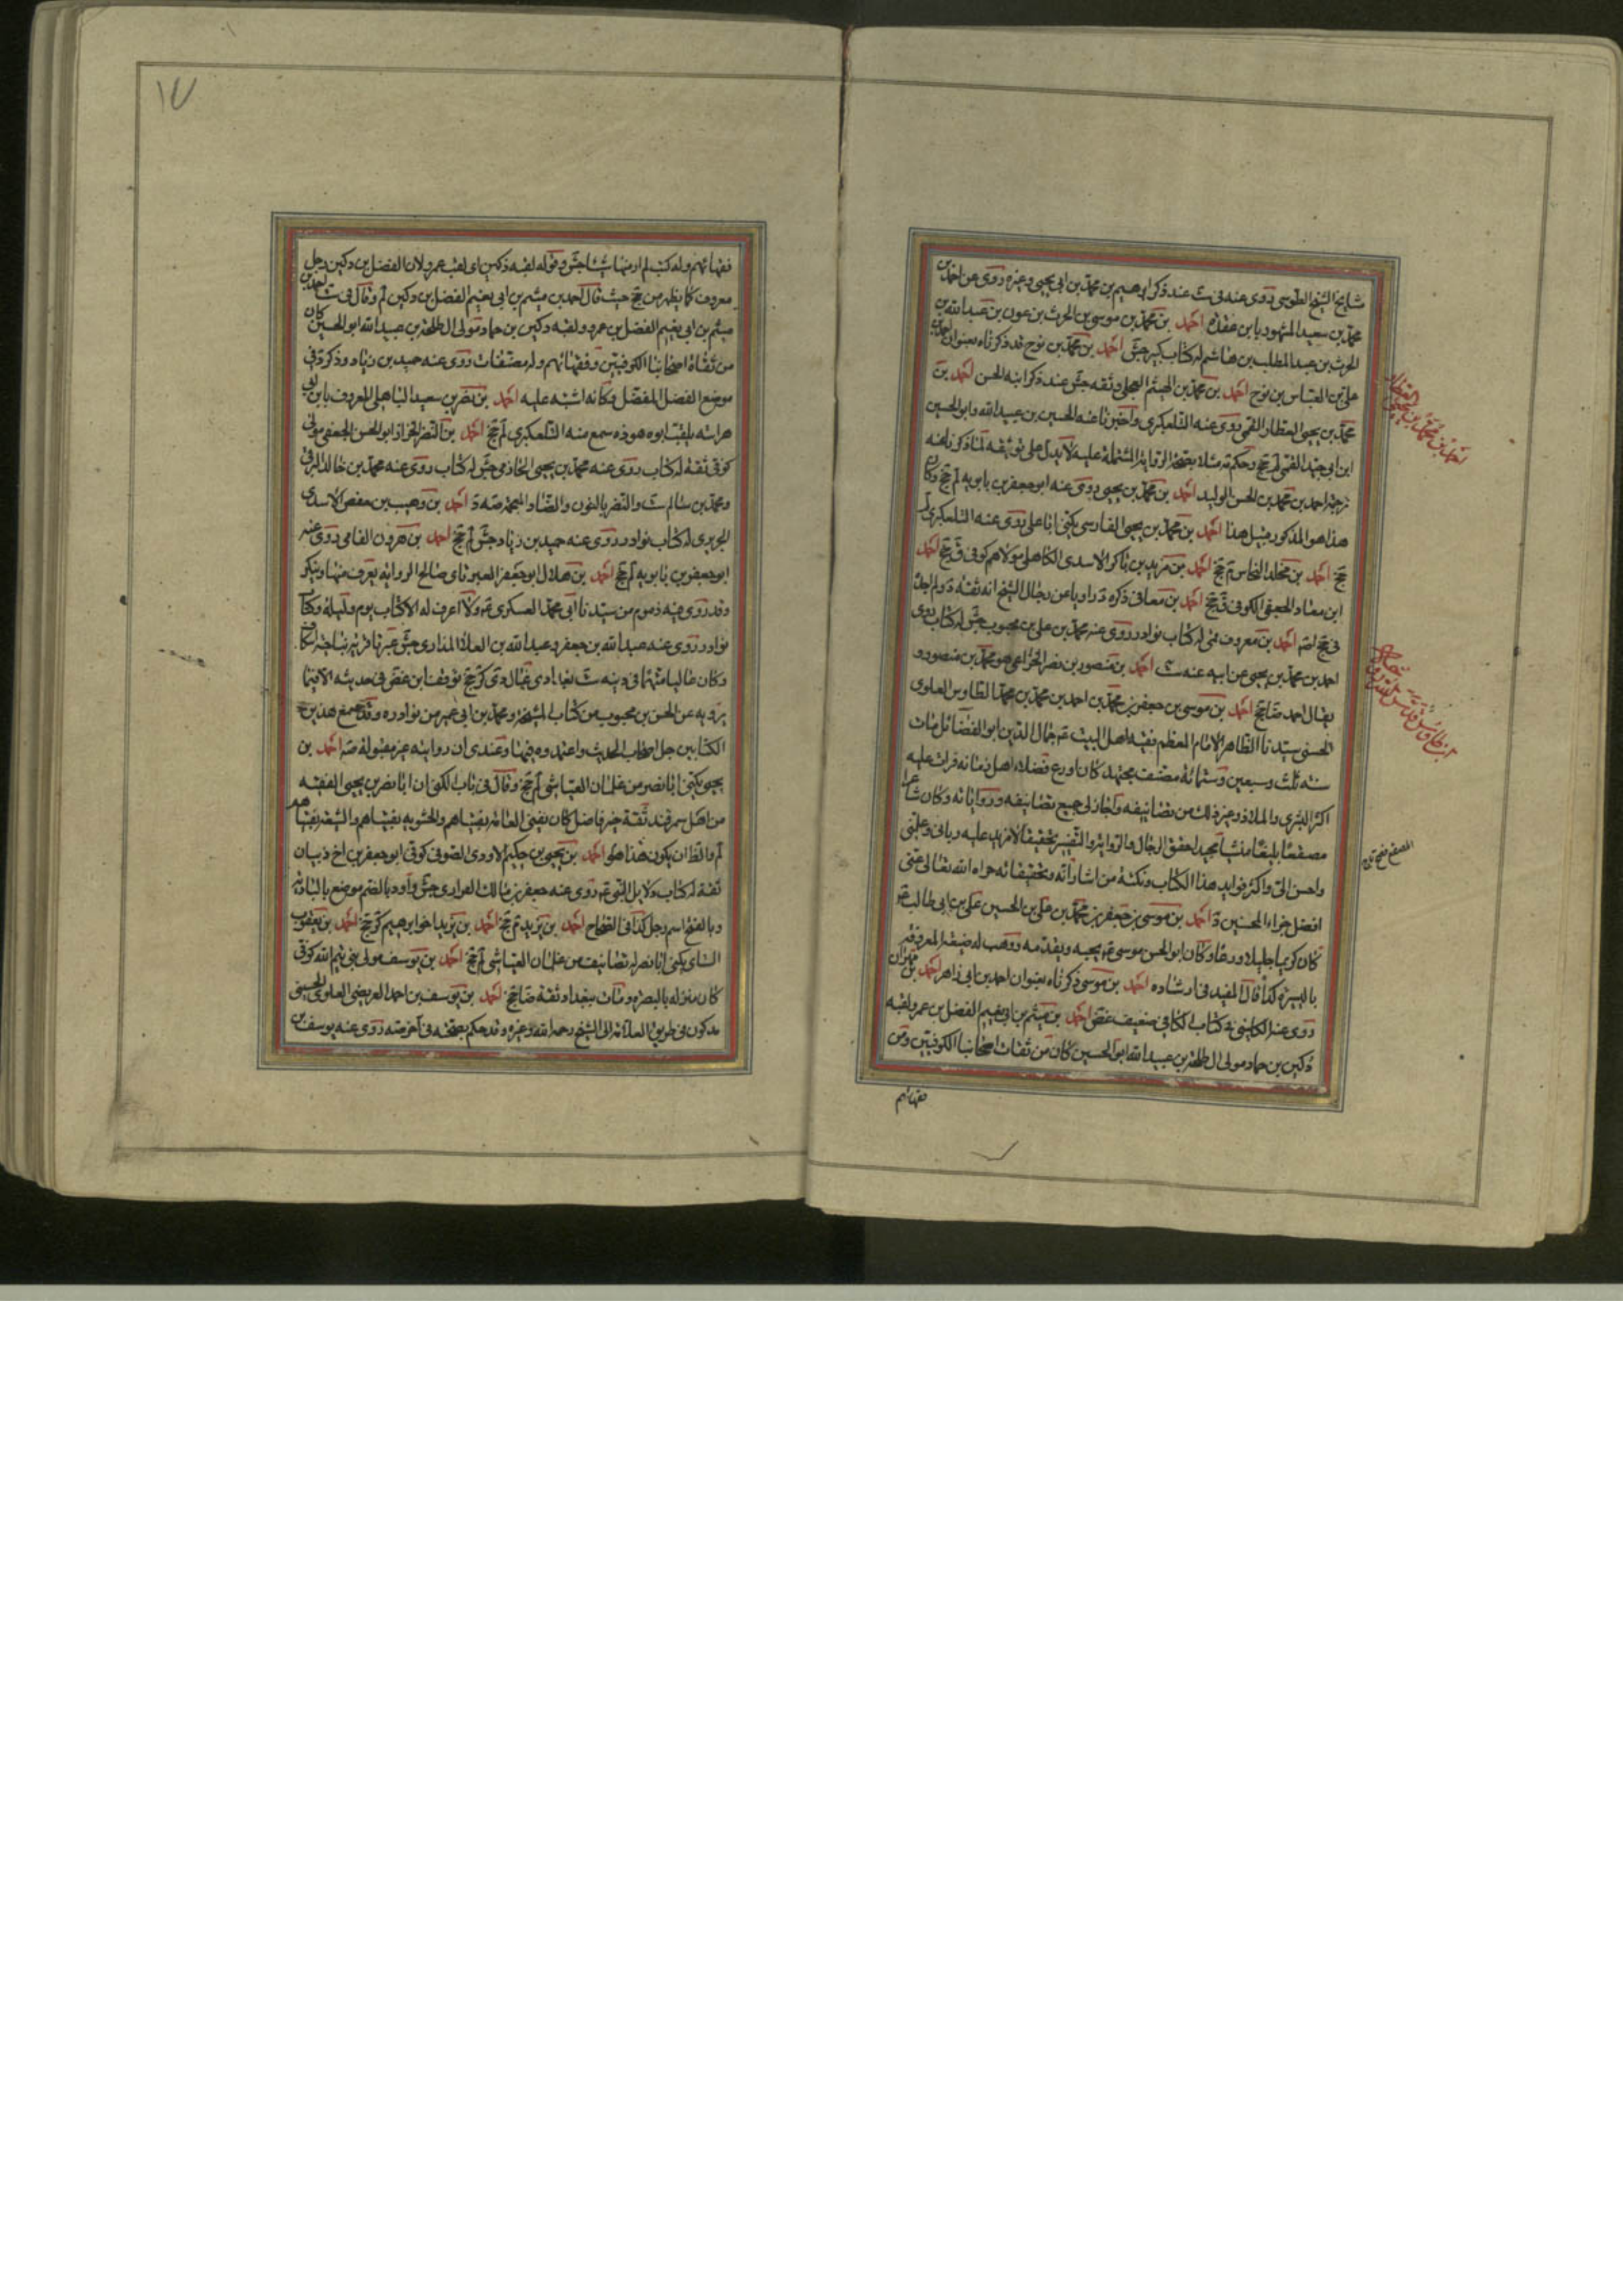 مشايخ الشيخ الطوسى روى عنه فى ست عند ذكر ابرهيم بن محمد بن ابى يحيى وغيره روى عن احمد بن
محمد بن سعيد المشهور بابن عقده احمد بن محمد بن موسى بن الحرث بن عون بن عبد الله بن
الحرث بن عبد المطلب بن هاشم له كتاب كبير جش احمد بن محمد بن نوح قد ذكرناه بعنوان احمد بن
على بن العباس بن نوح احمد بن محمد بن الهيثم العجلى وثقه جش عند ذكر ابنه الحسن احمد بن
محمد بن يحيى العطار القمى روى عنه التلعكبرى واخبرنا عنه الحسين بن عبيد الله وابو الحسين
ابن ابى جيد القمى لم جخ وحكم مثلا بصحة الرواية المشتملة عليه لا يدل على توثيقه لما ذكرنا عند
ترجمة احمد بن محمد بن الحسن الوليد احمد بن محمد بن يحيى روى عنه ابو جعفر بن بابويه لم جخ وكان
هذا هو المذكور قبيل هذا احمد بن محمد بن يحيى الفارسى يكنى ابا على روى عنه التلعكبرى لم
جخ احمد بن مخلد النخاس م جخ احمد بن مزيد بن باكر الاسدى الكاهلى مولاهم كوفى ق جخ احمد
ابن معاذ الجعفى الكوفى ق جخ احمد بن معافى ذكره د راويا عن رجال الشيخ انه ثقة د ولم اجده
فى جخ اصلا احمد بن معروف قمى له كتاب نوادر روى عنه محمد بن على بن محبوب جش له كتاب روى
احمد بن محمد بن يحيى عن ابيه عنه ست احمد بن منصور بن نصر الخزاعى هو محمد بن منصور و
يقال احمد ضا جخ احمد بن موسى بن جعفر بن محمد بن احمد بن محمد بن محمد الطاوس العلوى
الحسنى سيدنا الطاهر الامام المعظم فقيه اهل البيت ع جمال الدين ابو الفضائل مات
سنه ثلث وسبعين وستمائة مصنف مجتهد كان اورع فضلاء اهل زمانه قرات عليه
اكثر البشرى والملاذ وغير ذلك من تصانيفه واجازلى جميع تصانيفه ورواياته وكان شاعرا
مصقعا بليغا منشيا مجيدا حقق الرجال والرواية والتفسير تحقيقا لا مزيد عليه وربانى وعلمنى
واحسن الى واكثر فوايد هذا الكتاب ونكته من اشاراته وتحقيقاته جزاه الله تعالى عنى
افضل جزاء المحسنين د احمد بن موسى بن جعفر بن محمد بن على بن الحسين على بن ابى طالب ع
كان كريما جليلا ورعا وكان ابو الحسن موسى ع يحبه ويقدمه ووهب له ضيعته المعروفة
باليسيرة كذا قال المفيد فى ارشاده احمد بن موسى ذكرناه بعنوان احمد بن ابى زاهر احمد بن مهران
روى عنه الكلينى فى كتاب الكافى ضعيف غض احمد بن ميثم بن ابى نعيم الفضل بن عمر ولقبه
دكين بن حماد مولى ال طلحة بن عبيد الله ابو الحسين كان من ثقات اصحابنا الكوفيين ومن
فقهائهم
١٧
فقهائهم وله كتب لم ار منها شيئا جش وقوله لقبه دكين اى لقب عمرو لان الفضل بن دكين رجل
معروف كما يظهر من جخ حيث قال احمد بن ميثم بن ابى نعيم الفضل بن دكين لم وقال فى ست احمد بن
ميثم بن ابى نعيم الفضل بن عمرو ولقبه دكين بن حماد مولى ال طلحة بن عبيد الله ابو الحسين كان
من ثقاة اصحابنا الكوفيين وفقهائهم وله مصنفات روى عنه حميد بن زياد وذكر د فى
موضع الفضل المفضل وكانه اشتبه عليه احمد بن نصر بن سعيد الباهلى المعروف بابن ابى
هراسه يلقب ابوه هوذه سمع منه التلعكبرى لم جخ احمد بن النضر الخزاز ابو الحسن الجعفى مولى
كوفى ثقة له كتاب روى عنه محمد بن يحيى الخازمى جش له كتاب روى عنه محمد بن خالد البرقى
ومحمد بن سالم ست والنضر بالنون والضاد المعجمة صه د احمد بن وهيب بن حفص الاسدى
الجريرى له كتاب نوادر روى عنه حميد بن زياد جش لم جخ احمد بن هرون الفامى روى عنه
ابو جعفر بن بابويه لم جخ احمد بن هلال ابو جعفر العبرتاى صالح الرواية يعرف منها وينكر
وقد روى فيه ذموم من سيدنا ابى محمد العسكرى ع ولا اعرف له الا كتاب يوم وليلة وكتاب
نوادر روى عنه عبد الله بن جعفر وعبد الله بن العلا المذارى جش عبرتا قرية بناحية اسكاف
وكان غاليا متهما فى دينه ست بغدادى غال دى كر جخ توقف ابن غض فى حديثه الا فيما
يرويه عن الحسن بن محبوب من كتاب المشيخة ومحمد بن ابى عمير من نوادره وقد سمع هذين
الكتابين جل اصحاب الحديث واعتمدوه فيهما وعندى ان روايته غير مقبولة صه احمد بن
يحيى يكنى ابا نصر من غلمان العياشى لم جخ وقال فى باب الكنى ان ابا نصر بن يحيى الفقيه
من اهل سمرقند ثقة خير فاضل كان يفتى العامة بفتياهم والحشويه بفتياهم والشيعة بفتياهم
لم والظ ان يكون هذا هو احمد بن يحيى بن حكيم الاودى الصوفى كوفى ابو جعفر بن اخ ذبيان
ثقة له كتاب دلايل النبى ع روى عنه جعفر بن مالك الفرارى جش واود بالضم موضع بالبادية
وبالفتح اسم رجل كذا فى الصحاح احمد بن يزيد م جخ احمد بن يزيد اخو ابرهيم كر جخ احمد بن يعقوب
السناى يكنى ابا نصر له تصانيف من غلمان العياشى لم جخ احمد بن يوسف مولى بنى تيم الله كوفى
كان منزله بالبصره ومات ببغداد ثقة ضا جخ احمد بن يوسف بن احمد العريضى العلوى الحسينى
مذكور فى طريق العلامة الى الشيخ رحمه الله وغيره وقد حكم بصحته فى اخر صه روى عنه يوسف بن